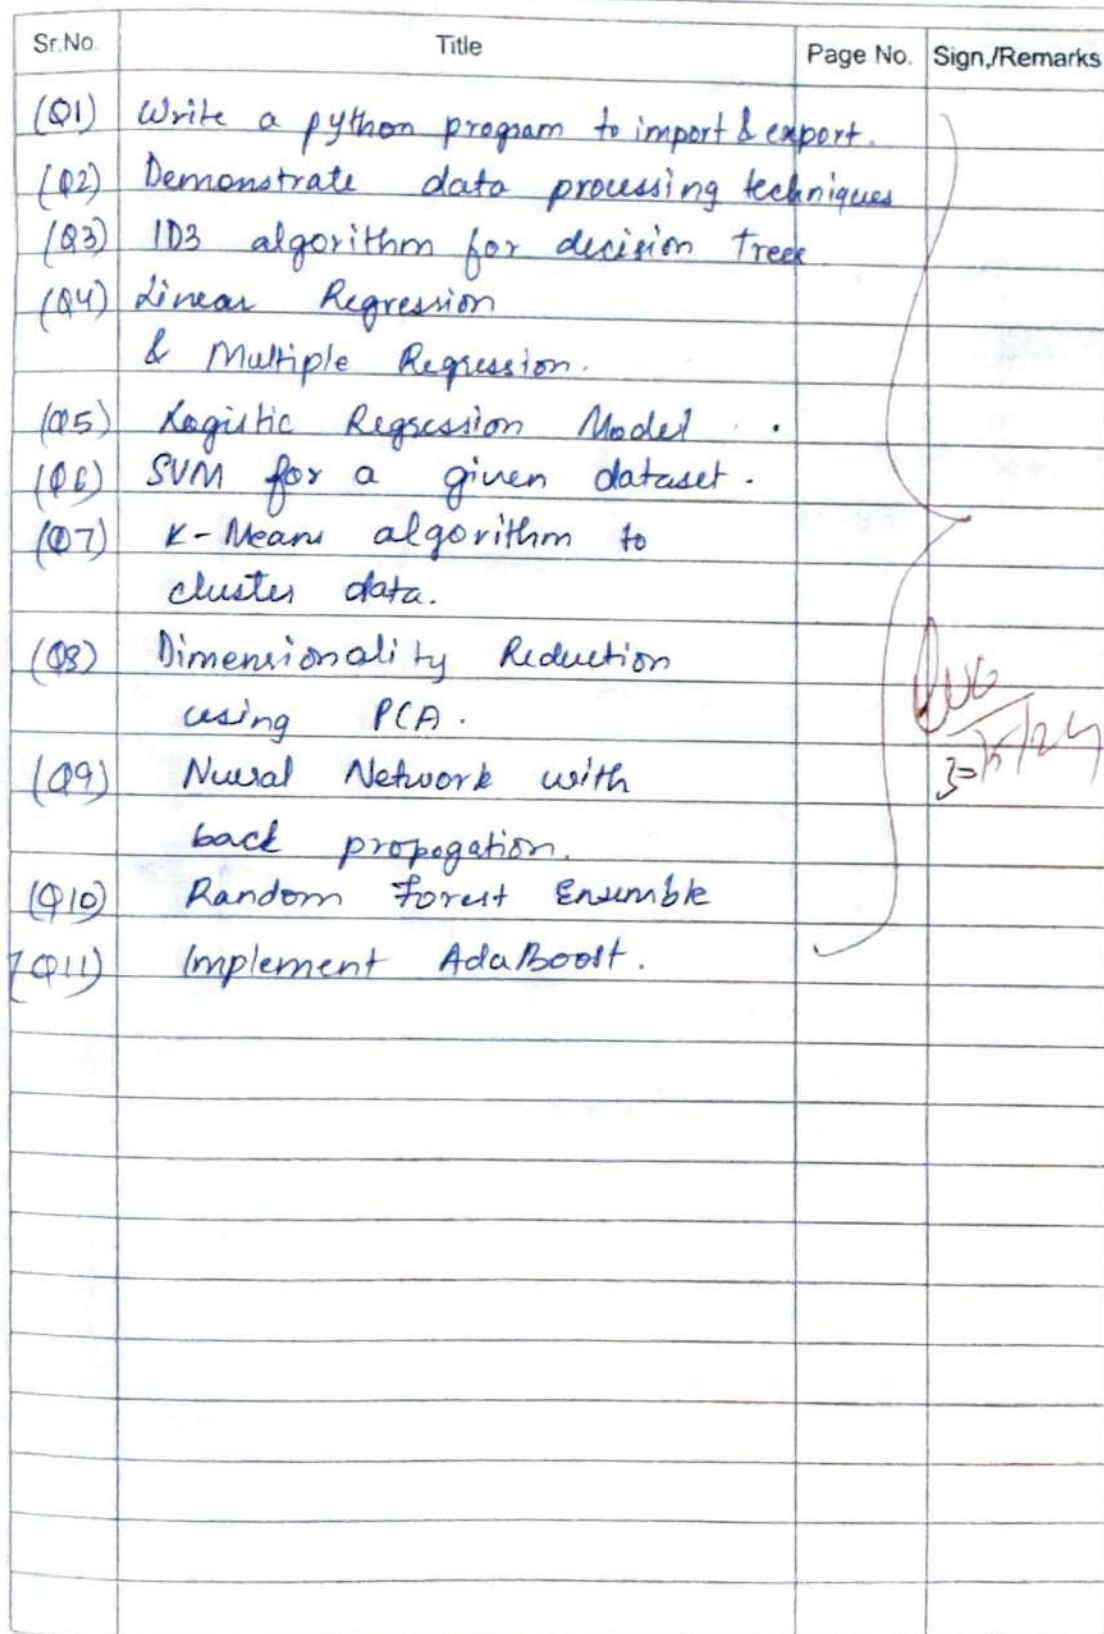 Sr.No. Title Page No. Sign,/Remarks
(Q1) Write a python program to import & export.
(Q2) Demonstrate data processing techniques
(Q3) ID3 algorithm for decision Trees
(Q4) Linear Regression
& Multiple Regression.
(Q5) Logistic Regression Model .
(Q6) SVM for a given dataset.
(Q7) K-Means algorithm to
cluster data.
(Q8) Dimensionality Reduction
using PCA.
(Q9) Nueral Network with
back propogation.
(Q10) Random Forest Ensemble
(Q11) Implement AdaBoost.